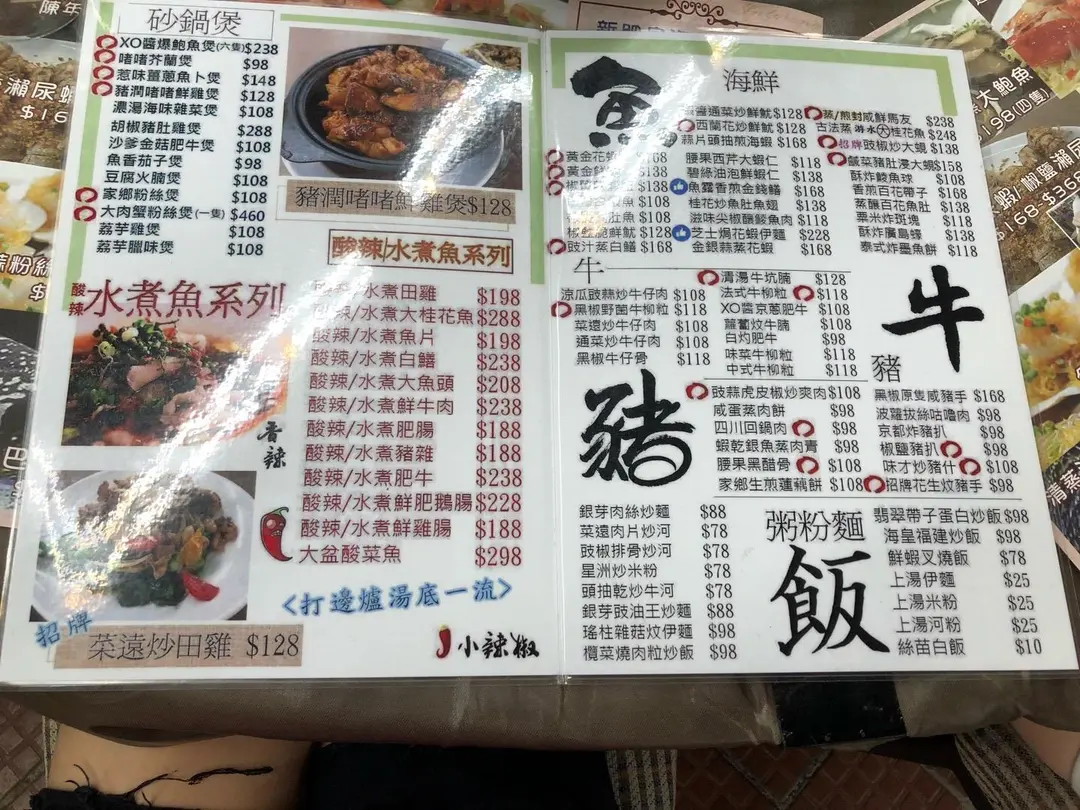 砂鍋煲
XO醬爆鮑魚煲(六隻)$238
啫啫芥蘭煲 $98
惹味薑蔥魚卜煲 $148
豬潤啫啫鮮雞煲 $128
濃湯海味雜菜煲 $108
胡椒豬肚雞煲 $288
沙爹金菇肥牛煲 $108
魚香茄子煲 $98
豆腐火腩煲 $108
家鄉粉絲煲 $108
大肉蟹粉絲煲(一隻) $460
荔芋雞煲 $108
荔芋臘味煲 $108
豬潤啫啫鮮雞煲$128
酸辣/水煮魚系列
酸辣 水煮魚系列
酸辣/水煮田雞 $198
酸辣/水煮大桂花魚 $288
酸辣/水煮魚片 $198
酸辣/水煮白鱔 $238
酸辣/水煮大魚頭 $208
酸辣/水煮鮮牛肉 $238
酸辣/水煮肥腸 $188
酸辣/水煮豬雜 $188
酸辣/水煮肥牛 $238
酸辣/水煮鮮肥鵝腸 $228
酸辣/水煮鮮雞腸 $188
大盆酸菜魚 $298
香辣
<打邊爐湯底一流>
招牌
菜遠炒田雞 $128
小辣椒
魚
海鮮
通菜炒鮮魷 $128
西蘭花炒鮮魷 $128
蒜片頭抽煎海蝦 $168
黃金花 $168
黃金 $168
椒 $138
$108
魚 $108
鮮魷 $128
豉汁蒸白鱔 $168
腰果西芹大蝦仁 $118
碧綠油泡鮮蝦仁 $138
魚露香煎金錢鱔 $168
桂花炒魚肚魚翅 $138
滋味尖椒釀鯪魚肉 $118
芝士焗花蝦伊麵 $228
金銀蒜蒸花蝦 $168
蒸/煎封咸鮮馬友 $238
古法蒸 大桂花魚 $248
招牌豉椒炒大蜆 $138
鹹菜豬肚浸大蜆$158
酥炸鯪魚球 $108
香煎百花帶子 $168
蒸釀百花魚肚 $138
粟米炸斑塊 $118
酥炸廣島蠔 $138
泰式炸墨魚餅 $118
牛
涼瓜豉蒜炒牛仔肉 $108
黑椒野菌牛柳粒 $118
菜遠炒牛仔肉 $108
通菜炒牛仔肉 $108
黑椒牛仔骨 $118
清湯牛坑腩 $128
法式牛柳粒 $118
XO醬京蔥肥牛 $108
蘿蔔炆牛腩 $108
白灼肥牛 $98
味菜牛柳粒 $118
中式牛柳粒 $118
牛
豬
豬
豉蒜虎皮椒炒爽肉 $108
咸蛋蒸肉餅 $98
四川回鍋肉 $98
蝦乾銀魚蒸肉青 $98
腰果黑醋骨 $108
家鄉生煎蓮藕餅 $108
黑椒原隻咸豬手 $168
波蘿拔絲咕嚕肉 $98
京都炸豬扒 $98
椒鹽豬扒 $98
味才炒豬什 $108
招牌花生炆豬手 $98
銀芽肉絲炒麵 $88
菜遠肉片炒河 $78
豉椒排骨炒河 $78
星洲炒米粉 $78
頭抽乾炒牛河 $78
銀芽豉油王炒麵 $88
瑤柱雜菇炆伊麵 $98
欖菜燒肉粒炒飯 $98
粥粉麵
飯
翡翠帶子蛋白炒飯 $98
海皇福建炒飯 $98
鮮蝦叉燒飯 $78
上湯伊麵 $25
上湯米粉 $25
上湯河粉 $25
絲苗白飯 $10
陳年
瀨尿蝦
大鮑魚
$198(四隻)
椒鹽瀨尿
$168
$368
清蒸